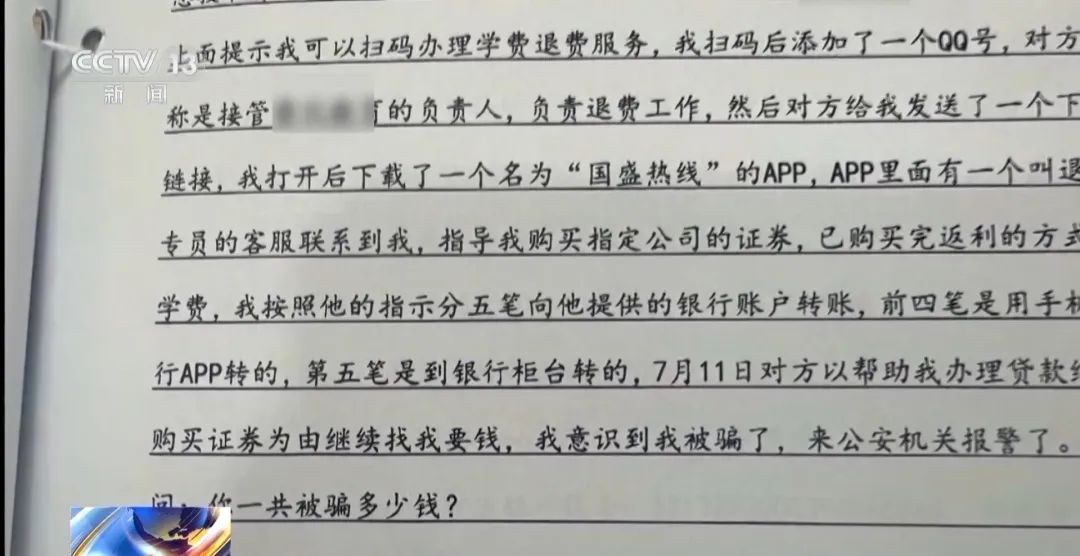 上面提示我可以扫码办理学费退费服务，我扫码后添加了一个QQ号，对方
CCTV 13
新闻
称是接管 的负责人，负责退费工作，然后对方给我发送了一个下
链接，我打开后下载了一个名为“国盛热线”的APP，APP里面有一个叫退
专员的客服联系到我，指导我购买指定公司的证券，已购买完返利的方式
学费，我按照他的指示分五笔向他提供的银行账户转账，前四笔是用手机
行APP转的，第五笔是到银行柜台转的，7月11日对方以帮助我办理贷款
购买证券为由继续找我要钱，我意识到我被骗了，来公安机关报警了。
问：你一共被骗多少钱？